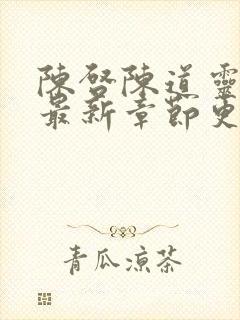 陳啓陳道靈
最新章節更
青瓜凉茶